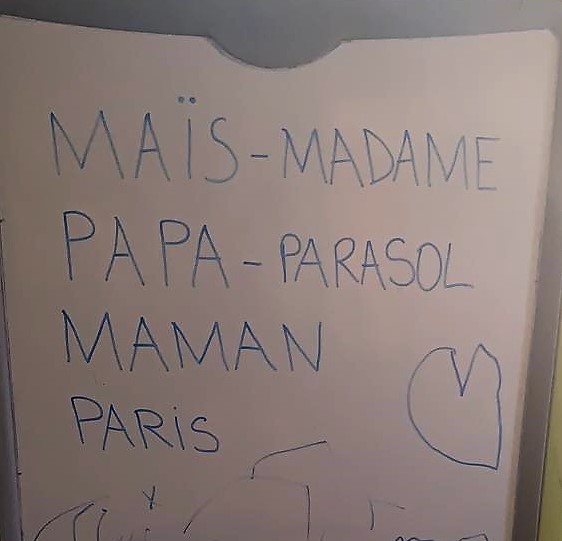 MAÏS - MADAME
PAPA - PARASOL
MAMAN
PARiS